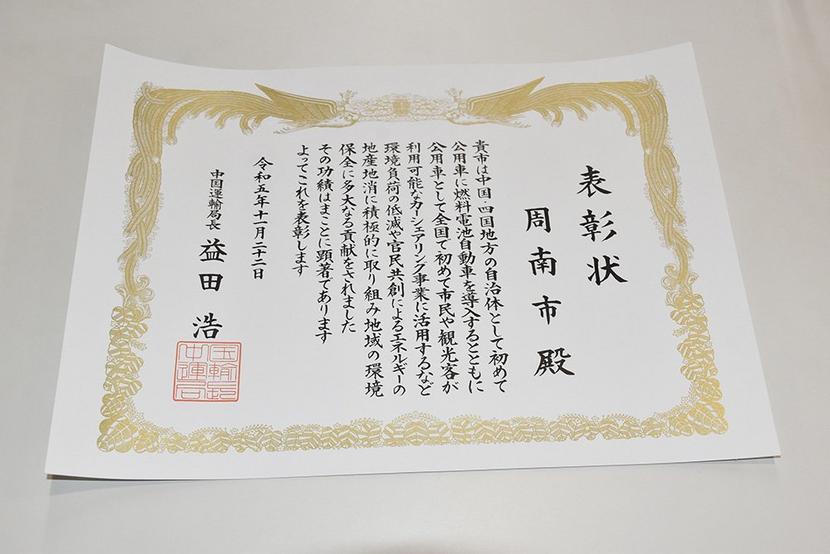 表彰状
周南市殿
貴市は中国・四国地方の自治体として初めて
公用車に燃料電池自動車を導入するとともに
公用車として全国で初めて市民や観光客が
利用可能なカーシェアリング事業に活用するなど
環境負荷の低減や官民共創によるエネルギーの
地産地消に積極的に取り組み地域の環境
保全に多大なる貢献をされました
その功績はまことに顕著であります
よってこれを表彰します
令和五年十一月二十二日
中国運輸局長 益田 浩